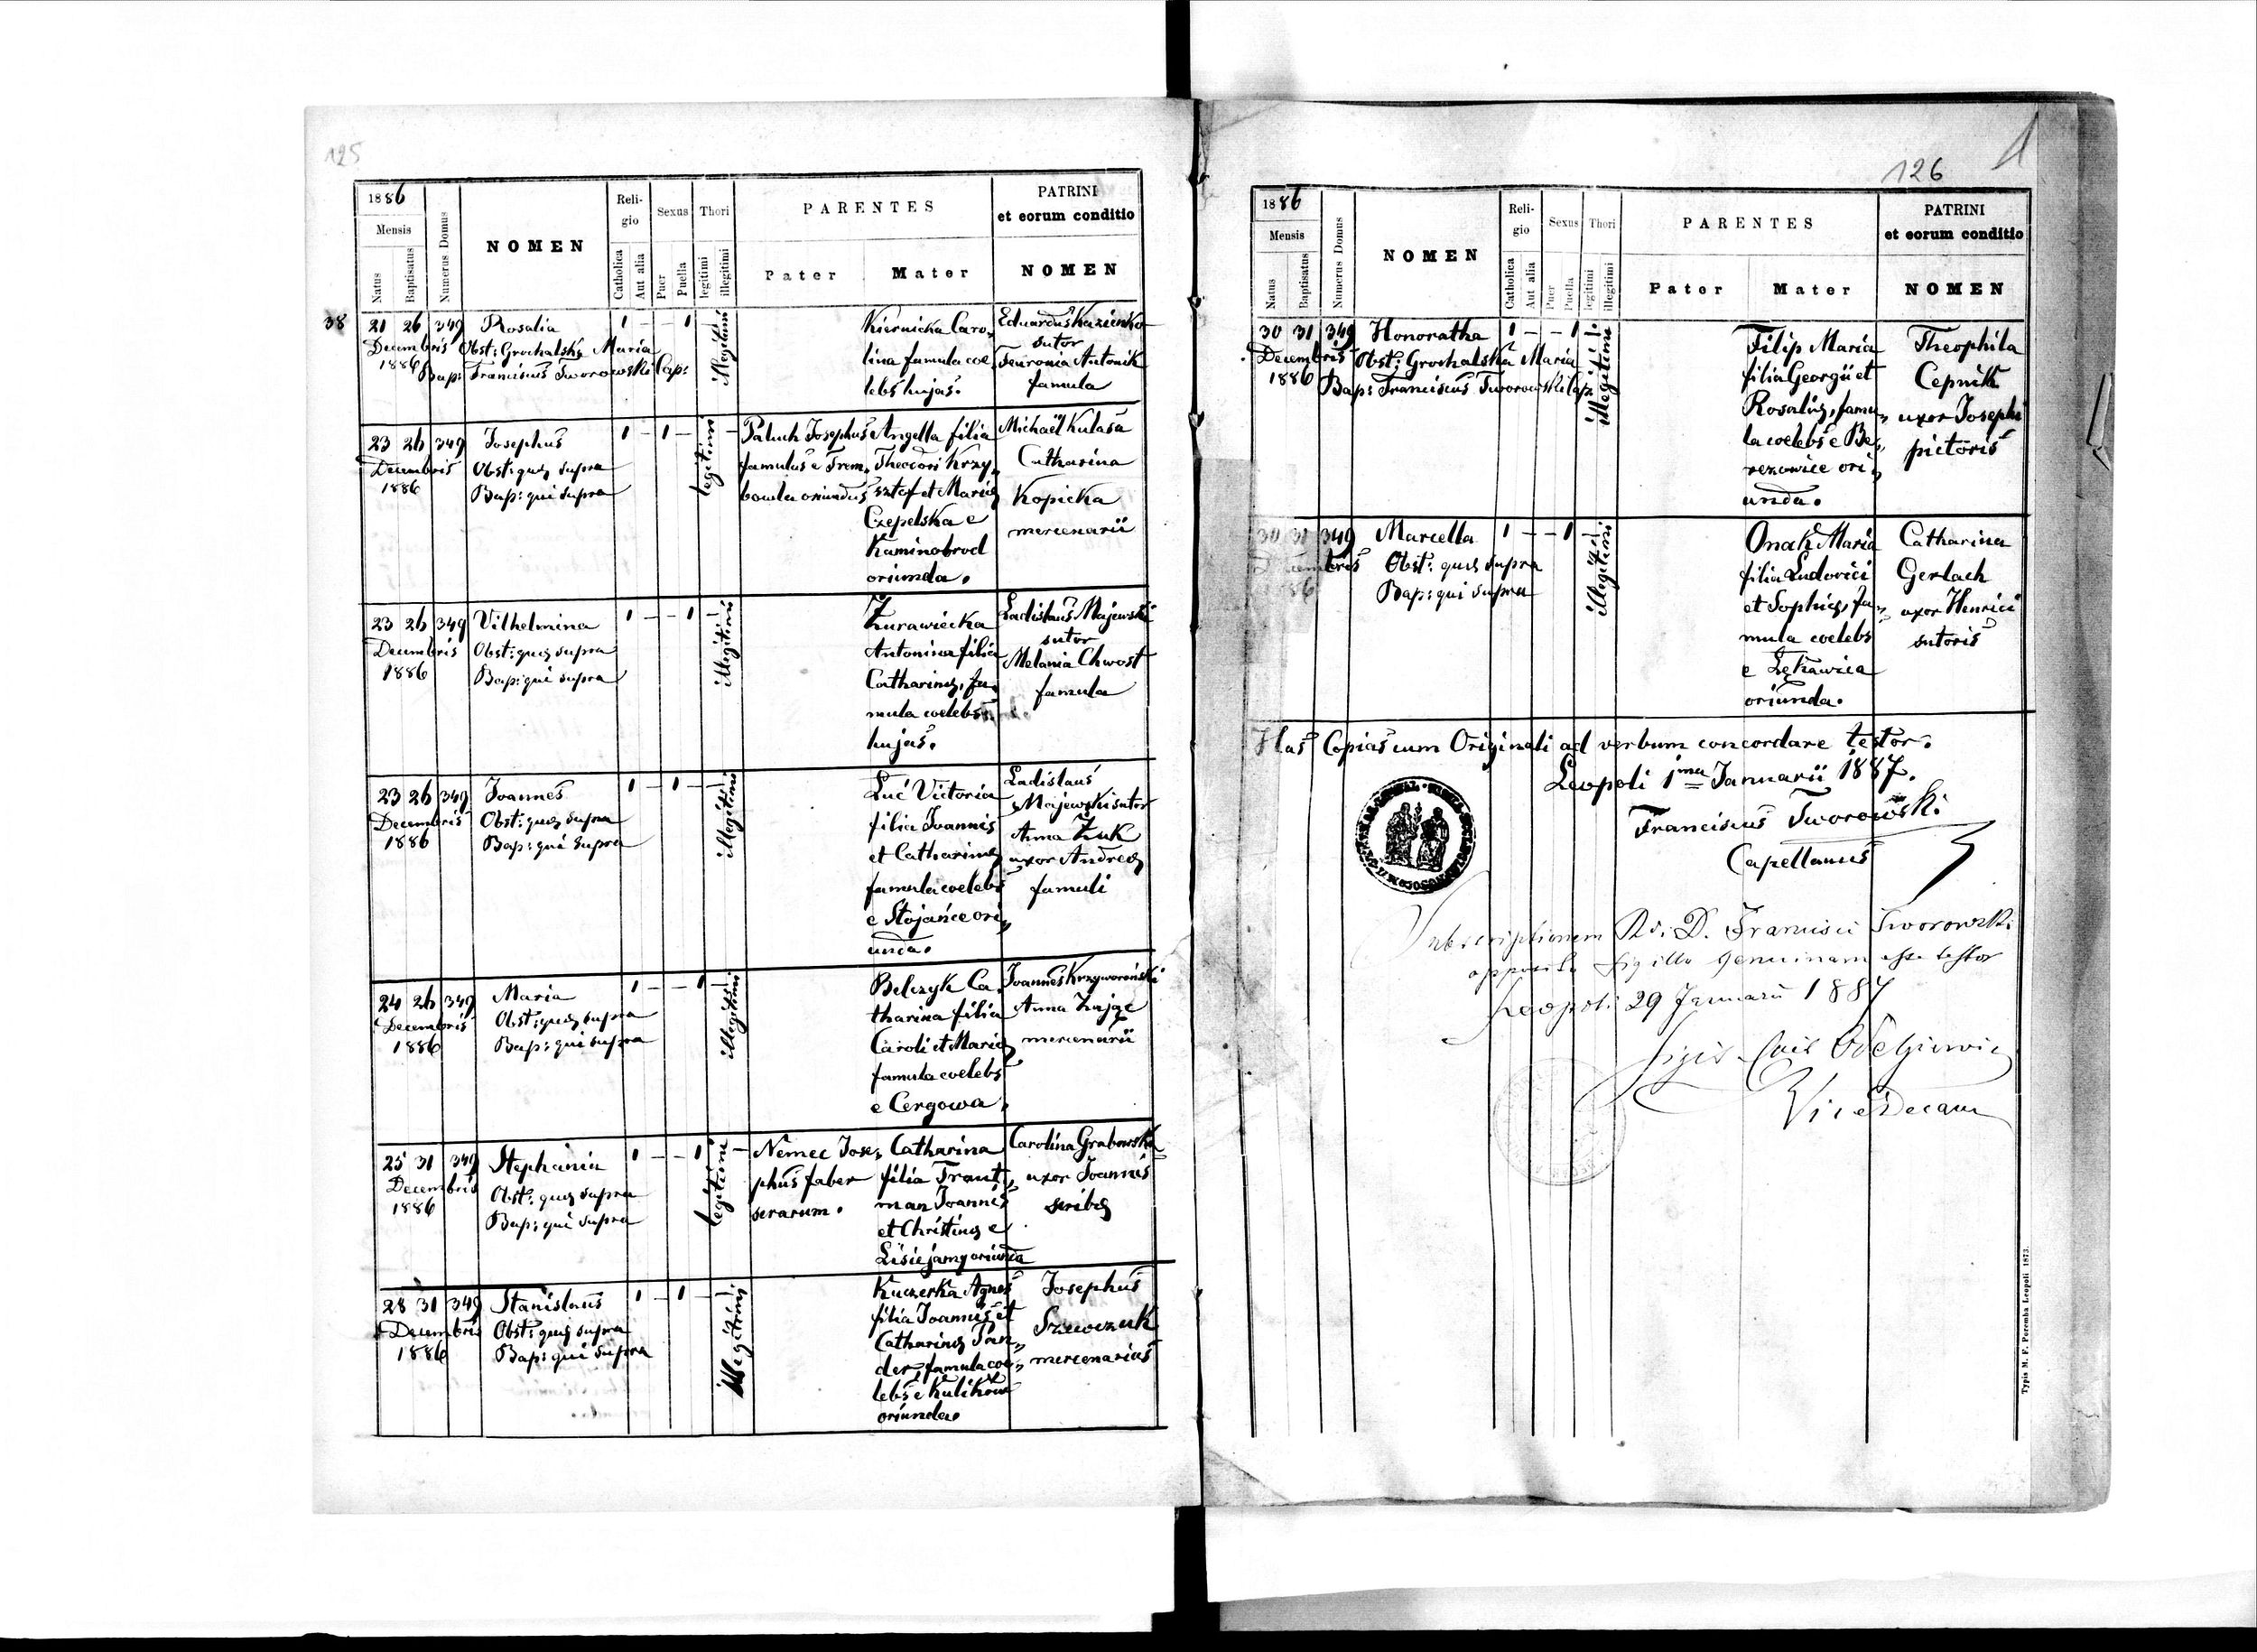 125
1886
Mensis
Natus
Baptisatus
Numerus Domus
NOMEN
Reli-
gio
Catholica
Aut alia
Sexus
Puer
Puella
Thori
legitimi
illegitimi
PARENTES
Pater
Mater
PATRINI
et eorum conditio
NOMEN
38
21 26 349 Rosalia 1 – – 1 – 1
Decembris
1886
Obst: Grochalska Maria
Bap: Franciscus Tworowski Cap:
illegitimi
Kiernicka Caro„
lina famula coe„
lebs hujas.
Eduardus Kazienko
sutor
Feuronia Antonik
famula
23 26 349 Josephus 1 – 1 – 1 –
Decembris
1886
Obst: quæ supra
Bap: qui supra
legitimi
Paluch Josephus
famulus e Trem„
bowla oriundus
Angella filia
Theodori Krzy„
sztof et Mariæ
Czepelska e
Kaminobrod
oriunda.
Michaël Kulasa
Catharina
Kopicka
mercenarii
23 26 349 Vilhelmina 1 – – 1 – 1
Decembris
1886
Obst: quæ supra
Bap: qui supra
illegitimi
Żurawiecka
Antonina filia
Catharinæ, fa„
mula coelebs
hujas.
Ladislaus Majewski
sutor
Melania Chwost
famula
23 26 349 Joannes 1 – 1 – – 1
Decembris
1886
Obst: quæ supra
Bap: qui supra
illegitimi
Luć Victoria
filia Joannis
et Catharinæ
famula coelebs
e Stojańce ori„
unda.
Ladislaus
Majewski sutor
Anna Żuk
uxor Andreæ
famuli
24 26 349 Maria 1 – – 1 – 1
Decembris
1886
Obst: quæ supra
Bap: qui supra
illegitimi
Belczyk Ca„
tharina filia
Caroli et Mariæ
famula coelebs
e Cergowa.
Joannes Krzyworoński
Anna Zając
mercenarii
25 31 349 Stephania 1 – – 1 1 –
Decembris
1886
Obst: quæ supra
Bap: qui supra
legitimi
Nemec Jose„
phus faber
serarum.
Catharina
filia Traut„
man Joannis
et Christinæ e
Lisiejamy oriunda
Carolina Grabowska
uxor Joannis
scribæ
28 31 349 Stanislaus 1 – 1 – – 1
Decembris
1886
Obst: quæ supra
Bap: qui supra
illegitimi
Kuczerka Agnes
filia Joannis et
Catharinæ
famula coe„
lebs e Kulikow
oriunda.
Josephus
Szewczuk
mercenarius
126
1886
Mensis
Natus
Baptisatus
Numerus Domus
NOMEN
Reli-
gio
Catholica
Aut alia
Sexus
Puer
Puella
Thori
legitimi
illegitimi
PARENTES
Pater
Mater
PATRINI
et eorum conditio
NOMEN
30 31 349 Honoratha 1 – – 1 – 1
Decembris
1886
Obst: Grochalska Maria
Bap: Franciscus Tworowski Cap:
illegitimi
Filip Maria
filia Georgii et
Rosaliæ, famu„
la coelebs e Be„
rezowice ori„
unda.
Theophila
Cepnik
uxor Josephi
pictoris
30 31 349 Marcella 1 – – 1 – 1
Decembris
1886
Obst: quæ supra
Bap: qui supra
illegitimi
Onak Maria
filia Ludovici
et Sophiæ, fa„
mula coelebs
e Łękawica
oriunda.
Catharina
Gerlach
uxor Henrici
sutoris
Has Copias cum Originali ad verbum concordare testor.
Leopoli 1ma Januarii 1887.
Franciscus Tworowski
Capellanus
Subscriptionem Rdi D. Francisci Tworowski
apposito sigillo genuinam esse testor
Leopoli 29 Januarii 1887
ViceDecanu
Typis M. F. Poremba Leopoli 1873.